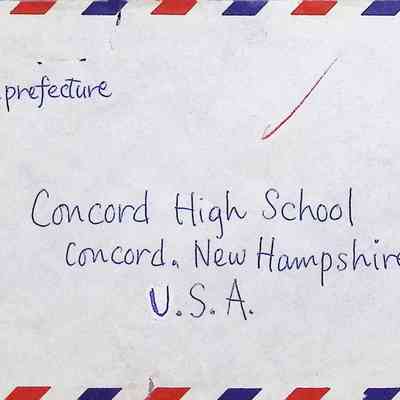 prefecture
Concord High School
Concord. New Hampshire
U.S.A.